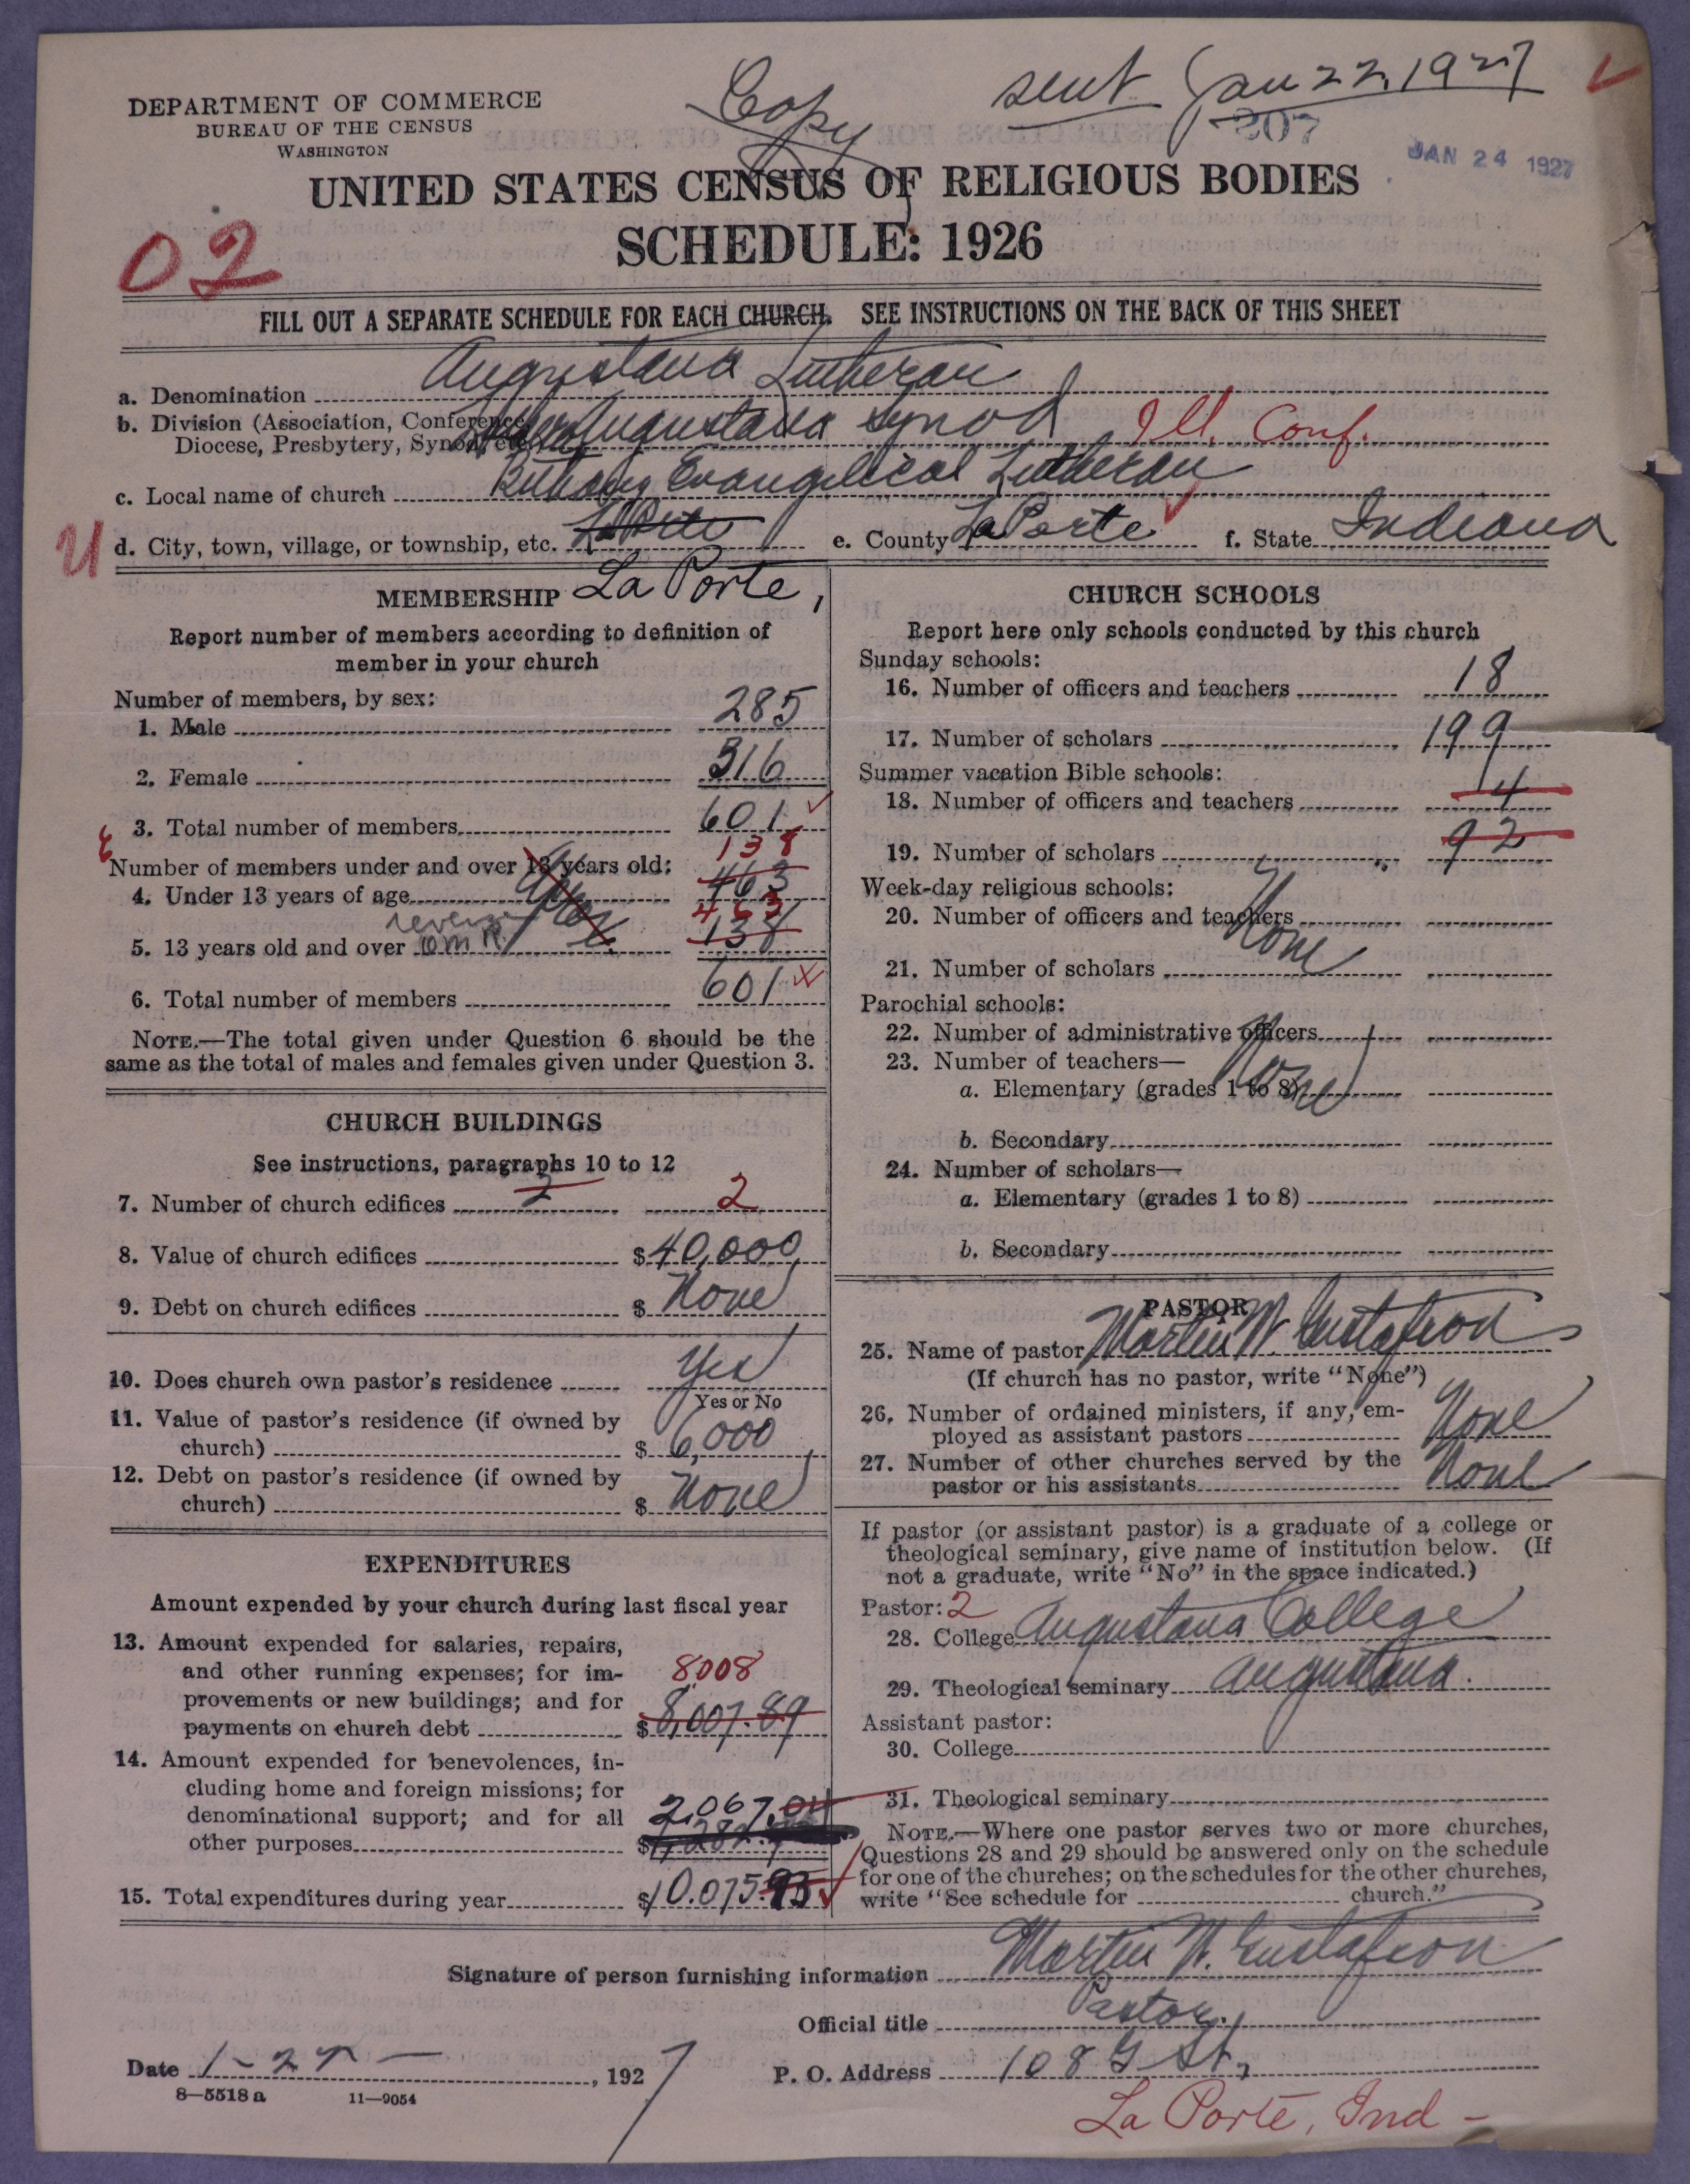 Copy
sent Jan 22, 1927
207
JAN 24 1927
DEPARTMENT OF COMMERCE
BUREAU OF THE CENSUS
WASHINGTON
UNITED STATES CENSUS OF RELIGIOUS BODIES
SCHEDULE: 1926
02
FILL OUT A SEPARATE SCHEDULE FOR EACH CHURCH. SEE INSTRUCTIONS ON THE BACK OF THIS SHEET
a. Denomination Augustana Lutheran
b. Division (Association, Conference,
Diocese, Presbytery, Synod, etc.) Augustana Synod Ill. Conf.
c. Local name of church Bethany Evangelical Lutheran
U
d. City, town, village, or township, etc. La Porte e. County La Porte f. State Indiana
La Porte,
MEMBERSHIP
Report number of members according to definition of
member in your church
Number of members, by sex:
1. Male 285
2. Female 316
3. Total number of members 601
Number of members under and over 13 years old:
138
4. Under 13 years of age 463
463
reverse
5. 13 years old and over OMR 138
6. Total number of members 601
NOTE.—The total given under Question 6 should be the
same as the total of males and females given under Question 3.
CHURCH BUILDINGS
See instructions, paragraphs 10 to 12
7. Number of church edifices 2 2
8. Value of church edifices $ 40,000
9. Debt on church edifices $ None
10. Does church own pastor's residence Yes
Yes or No
11. Value of pastor's residence (if owned by
church) $ 6,000
12. Debt on pastor's residence (if owned by
church) $ None
EXPENDITURES
Amount expended by your church during last fiscal year
13. Amount expended for salaries, repairs,
and other running expenses; for im-
provements or new buildings; and for
payments on church debt 8008
$ 8,007.89
14. Amount expended for benevolences, in-
cluding home and foreign missions; for
denominational support; and for all
other purposes 2,067.04
$
15. Total expenditures during year $ 10.075.93
CHURCH SCHOOLS
Report here only schools conducted by this church
Sunday schools:
16. Number of officers and teachers 18
17. Number of scholars 199
Summer vacation Bible schools:
18. Number of officers and teachers 4
19. Number of scholars 92
Week-day religious schools:
20. Number of officers and teachers
None
21. Number of scholars
Parochial schools:
22. Number of administrative officers
23. Number of teachers—
None
a. Elementary (grades 1 to 8)
b. Secondary
24. Number of scholars—
a. Elementary (grades 1 to 8)
b. Secondary
PASTOR
25. Name of pastor Martin W. Gustafson
(If church has no pastor, write "None")
26. Number of ordained ministers, if any, em-
ployed as assistant pastors None
27. Number of other churches served by the
pastor or his assistants None
If pastor (or assistant pastor) is a graduate of a college or
theological seminary, give name of institution below. (If
not a graduate, write "No" in the space indicated.)
Pastor: 2
28. College Augustana College
29. Theological seminary Augustana.
Assistant pastor:
30. College
31. Theological seminary
NOTE.—Where one pastor serves two or more churches,
Questions 28 and 29 should be answered only on the schedule
for one of the churches; on the schedules for the other churches,
write "See schedule for church."
Signature of person furnishing information Martin W. Gustafson
Official title Pastor.
Date 1-27-, 1927 P. O. Address 108 G St,
8—5518 a 11—9054
La Porte, Ind -